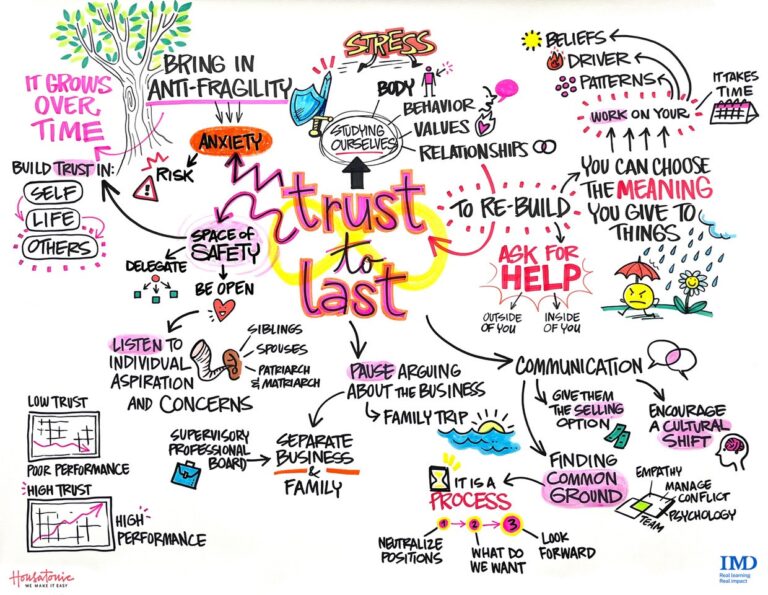 IT GROWS
OVER
TIME
BRING IN
ANTI-FRAGILITY
ANXIETY
RISK
BUILD TRUST IN:
SELF
LIFE
OTHERS
STRESS
BODY
BEHAVIOR
VALUES
RELATIONSHIPS
STUDYING
OURSELVES
BELIEFS
DRIVER
PATTERNS
IT TAKES
TIME
WORK ON YOUR
YOU CAN CHOOSE
THE MEANING
YOU GIVE TO
THINGS
TO RE-BUILD
ASK FOR
HELP
OUTSIDE
OF YOU
INSIDE
OF YOU
trust
to
last
SPACE OF
SAFETY
DELEGATE
BE OPEN
LISTEN TO
INDIVIDUAL
ASPIRATION
AND CONCERNS
SIBLINGS
SPOUSES
PATRIARCH
& MATRIARCH
PAUSE ARGUING
ABOUT THE BUSINESS
FAMILY TRIP
SUPERVISORY
PROFESSIONAL
BOARD
SEPARATE
BUSINESS
&
FAMILY
COMMUNICATION
GIVE THEM
THE SELLING
OPTION
ENCOURAGE
A CULTURAL
SHIFT
FINDING
COMMON
GROUND
EMPATHY
MANAGE
CONFLICT
PSYCHOLOGY
TEAM
IT IS A
PROCESS
1 2 3
NEUTRALIZE
POSITIONS
WHAT DO
WE WANT
LOOK
FORWARD
LOW TRUST
POOR PERFORMANCE
HIGH TRUST
HIGH
PERFORMANCE
Housatonic
WE MAKE IT EASY
IMD
Real learning
Real impact